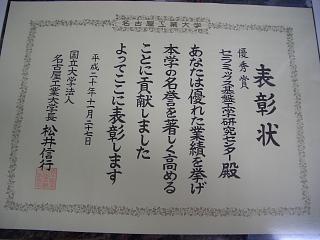 名古屋工業大学
表彰状
優秀賞
セラミックス基盤工学研究センター殿
あなたは優れた業績を挙げ
本学の名誉を著しく高める
ことに貢献しました
よってここに表彰します
平成二十年十一月二十七日
国立大学法人
名古屋工業大学長 松井信行